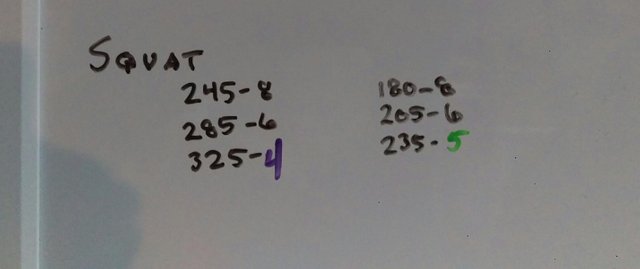 SQUAT
245-8 180-8
285-6 205-6
325-4 235-5